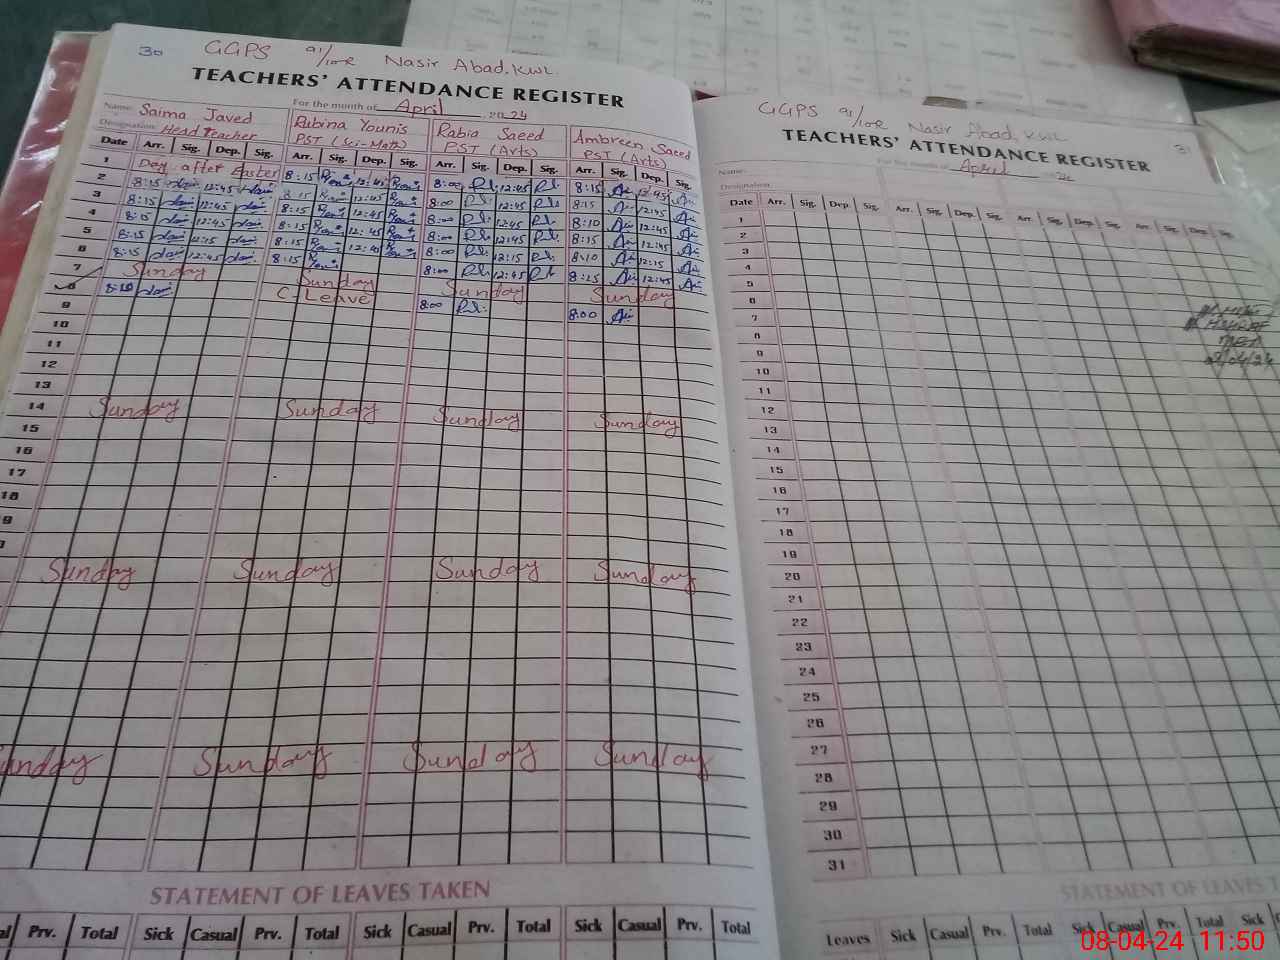 30 GGPS 91/10R Nasir Abad, KWL.
TEACHERS' ATTENDANCE REGISTER
For the month of April 2024
Name: Saima Javed Rubina Younis Rabia Saeed Ambreen Saeed
Designation: Head Teacher PST (Sci-Math) PST (Arts) PST (Arts)
Date Arr. Sig. Dep. Sig. Arr. Sig. Dep. Sig. Arr. Sig. Dep. Sig. Arr. Sig. Dep. Sig.
1 Day after Easter 8:15 12:45 8:00 12:45 8:15 12:45
2 8:15 12:45 8:15 12:45 8:00 12:45 8:15 12:45
3 8:15 12:45 8:15 12:45 8:00 12:45 8:10 12:45
4 8:15 12:45 8:15 12:45 8:00 12:45 8:15 12:45
5 8:15 8:15 8:00 12:15 8:10 12:15
6 8:15 12:45 8:15 8:00 12:45 8:15 12:45
7 Sunday Sunday Sunday Sunday
8 8:10 C-Leave 8:00 8:00
9
10
11
12
13
14 Sunday Sunday Sunday Sunday
15
16
17
18
9
Sunday Sunday Sunday Sunday
unday Sunday Sunday Sunday
STATEMENT OF LEAVES TAKEN
Prv. Total Sick Casual Prv. Total Sick Casual Prv. Total Sick Casual Prv. Total
GGPS 91/10R Nasir Abad, KWL 31
TEACHERS' ATTENDANCE REGISTER
For the month of April 24
Name:
Designation:
Date Arr. Sig. Dep. Sig. Arr. Sig. Dep. Sig. Arr. Sig. Dep. Sig. Arr. Sig. Dep. Sig.
1
2
3
4
5
6
7
8
9
10
11
12
13
14
15
16
17
18
19
20
21
22
23
24
25
26
27
28
29
30
31
STATEMENT OF LEAVES T
Leaves Sick Casual Prv. Total Sick Casual Prv. Total Sick
08-04-24 11:50